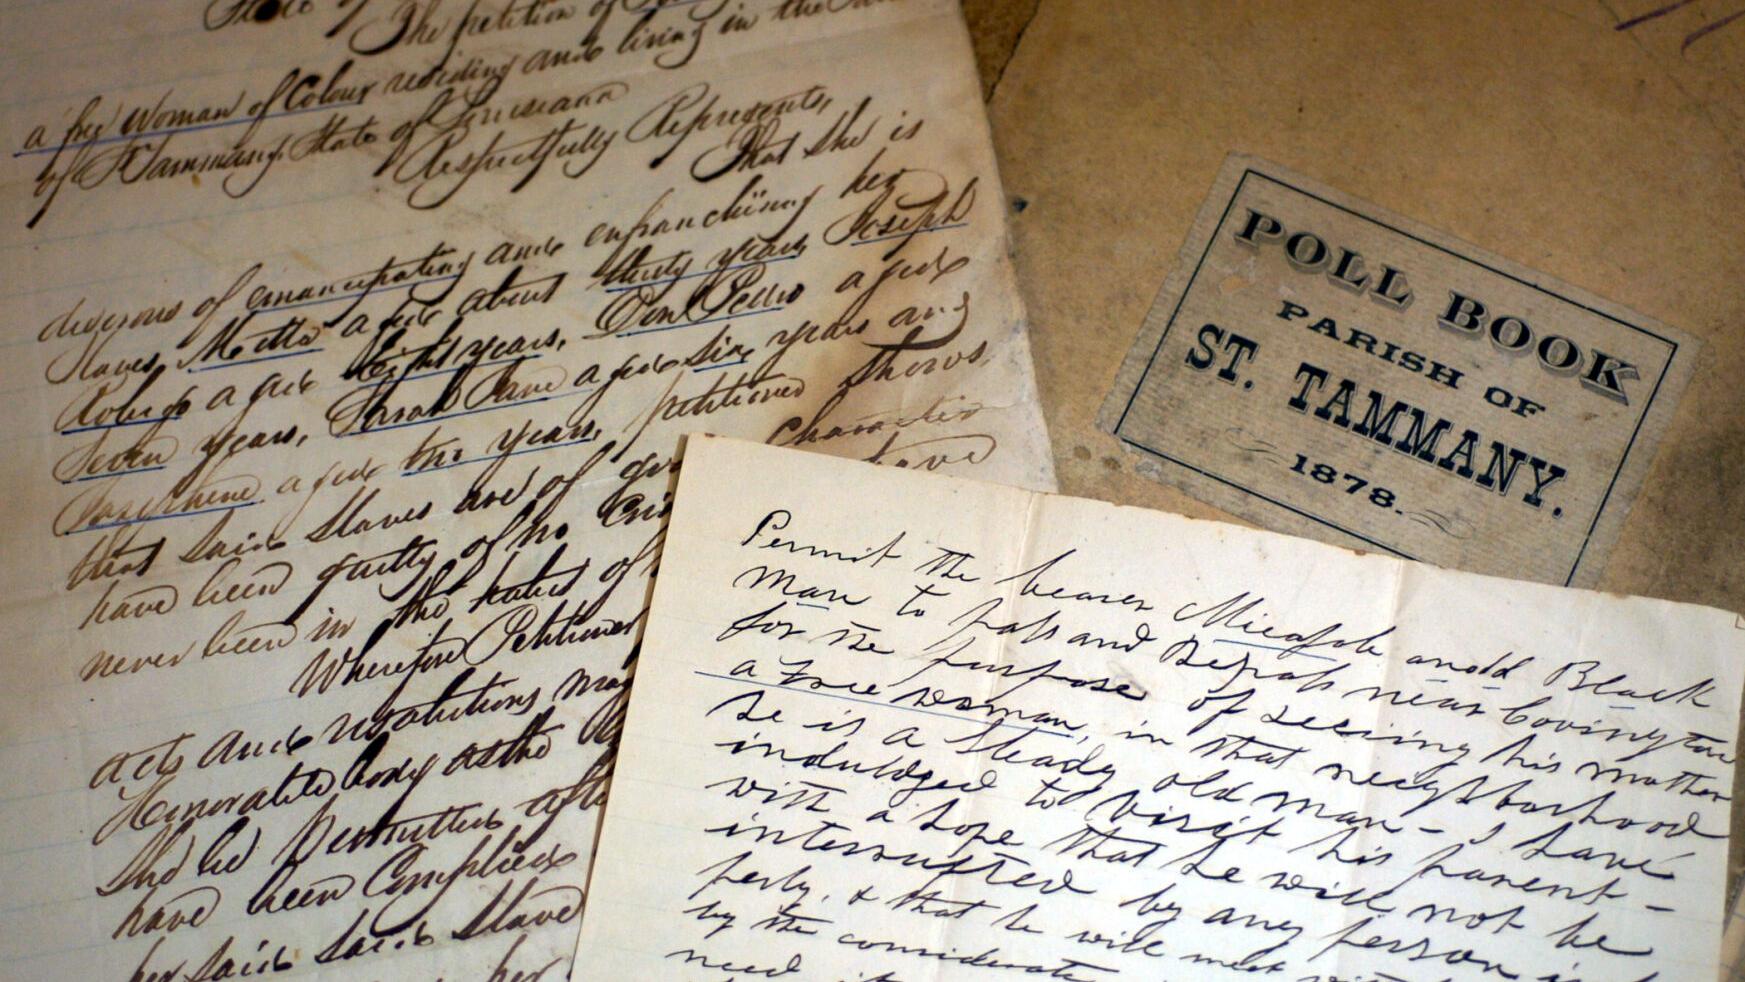 State of
The petition of
a free Woman of Colour residing and living in the
of St Tammany, State of Louisiana
Respectfully Represents,
That She is
desirous of emancipating and enfranchising her
slaves, aged about thirty years, Joseph
aged Eight years, aged
Seven years, Sarah Jane aged Six years and
Josephine aged two years, petitioner shows,
that said Slaves are of good Character
have been guilty of no Cri have
never been in the habit of
Wherefore Petitioner
acts and resolutions may
Honorable body as the
She be permitted after
have been Complied
her said Slave
her
POLL BOOK
PARISH OF
ST. TAMMANY.
1878.
Permit the bearer an old Black
man to pass and Repass near Covington
for the purpose of seeing his mother
a Free woman, in that neighborhood
He is a Steady old man - I have
indulged to visit his parent -
with a hope that he will not be
interrupted by any person
& that he will meet
by the considerate
need